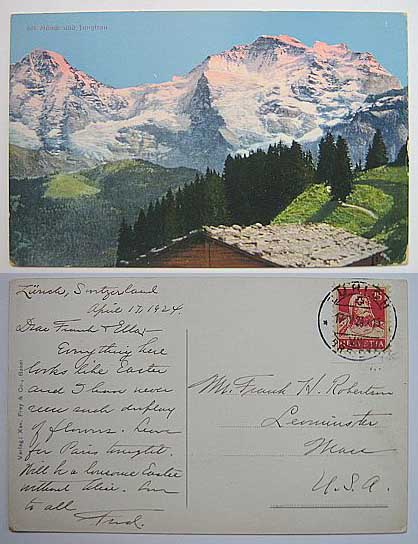 Mönch und Jungfrau
Zürich, Switzerland
April 17, 1924.
Dear Frank & Ella:
Everything here
looks like Easter
and I have never
seen such display
of flowers. Leave
for Paris tonight.
Will be a lonesome Easter
without Alice. Love
to all
Fred.
Mr. Frank H. Robertson
Leominster
Mass
U.S.A.
HELVETIA
Verlag: Xav. Frey & Co., Basel